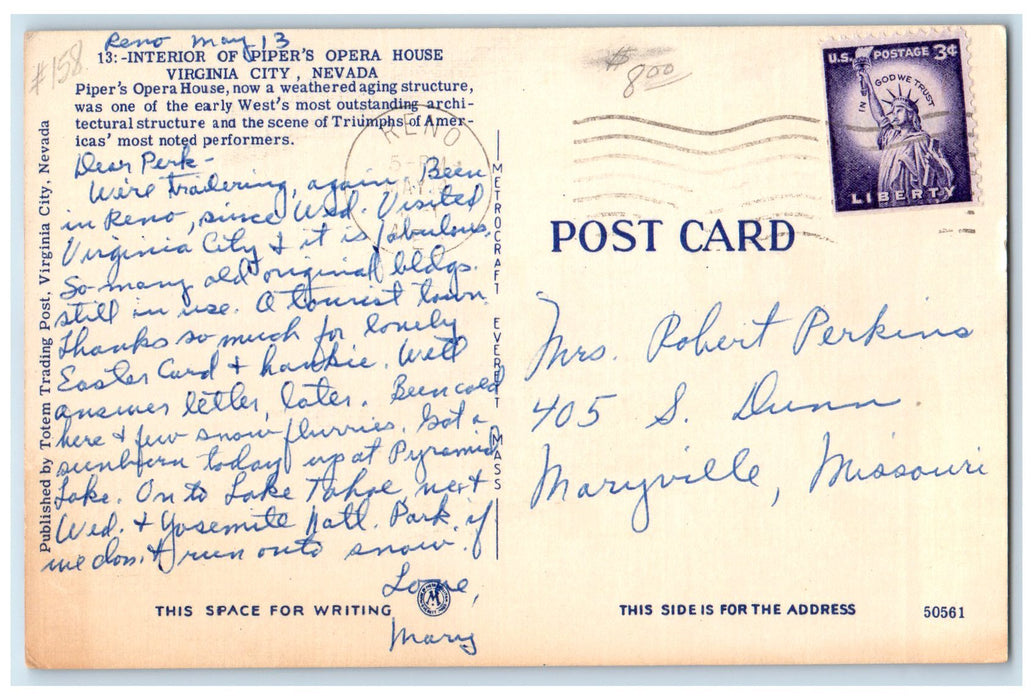 #158
Reno May 13
13:-INTERIOR OF PIPER'S OPERA HOUSE
VIRGINIA CITY, NEVADA
Piper's Opera House, now a weathered aging structure,
was one of the early West's most outstanding archi-
tectural structure and the scene of Triumphs of Amer-
icas' most noted performers.
Dear Perk-
We're Trailering, again. Been
in Reno, since Wed. Visited
Virginia City & it is fabulous.
So many old & original bldgs.
still in use. A tourist town.
Thanks so much for lovely
Easter Card & hankie. Will
answer letter, later. Been cold
here & few snow flurries. Got a
sunburn today up at Pyramid
Lake. On to Lake Tahoe next
Wed. & Yosemite Natl. Park, if
we don't run onto snow.
Love,
Mary
Published by Totem Trading Post, Virginia City, Nevada
METROCRAFT EVERETT MASS
THIS SPACE FOR WRITING
M
$
8.00
RENO
5-PM
MAY
U.S. POSTAGE 3¢
IN GOD WE TRUST
LIBERTY
POST CARD
Mrs. Robert Perkins
405 S. Dunn.
Maryville, Missouri
THIS SIDE IS FOR THE ADDRESS
50561